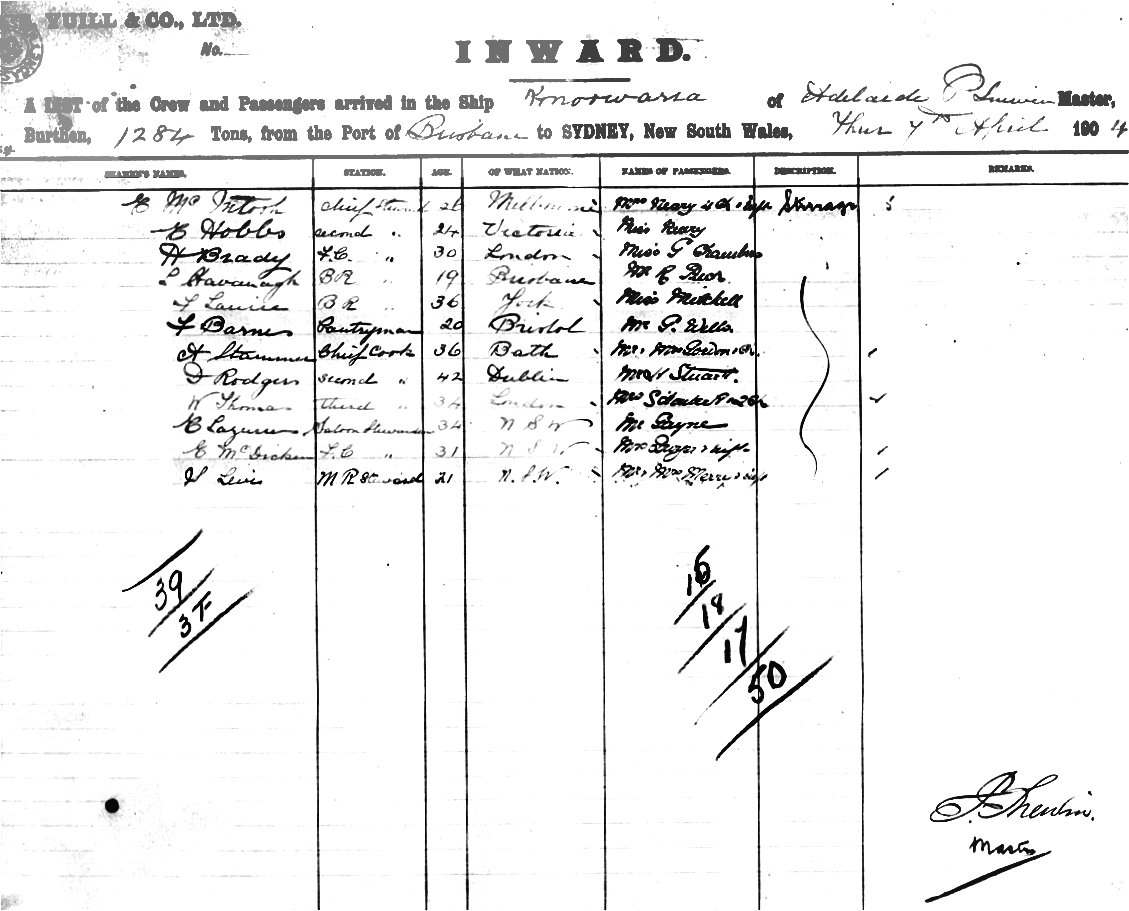 YUILL & CO., LTD.
No.
INWARD.
A LIST of the Crew and Passengers arrived in the Ship Konoowarra of Adelaide P Master,
Burthen, 1284 Tons, from the Port of Brisbane to SYDNEY, New South Wales, Thur 7th April 1904
SEAMEN'S NAMES. STATION. AGE. OF WHAT NATION. NAMES OF PASSENGERS. DESCRIPTION. REMARKS.
E McIntosh chief Steward 26 Melbourne Mrs Neary 4 Ch & Inft Steerage 5
E Hobbs second " 24 Victoria Miss Neary
H Brady F.C. " 30 London Miss G Chambers
Kavanagh BR " 19 Brisbane Mr R
F Laurie BR " 36 York Miss Mitchell
F Barnes Pantryman 20 Bristol Mr P. Wells
A Chief Cook 36 Bath Mr & Mrs Gordon
D Rodgers second " 42 Dublin Mr H Stuart.
W Thomas third " 34 London Mrs 2 Ch
E Lazurus Saloon Stewardess 34 N S W Mr Payne
E McDicken F.C " 31 N S W Mrs & inft
Lewis M R Steward 21 N.S.W. Mr & Mrs Merry & inft
39
37
16
18
17
50
Master